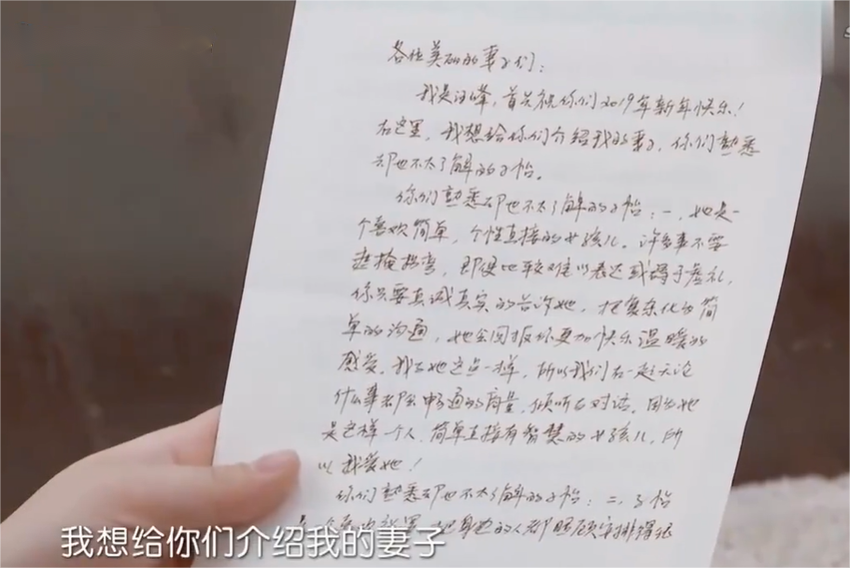 各位美丽的妻子们:
我是汪峰,首先祝你们2019年新年快乐!
在这里,我想给你们介绍我的妻子,你们熟悉
却也不太了解的子怡。
你们熟悉却也不太了解的子怡:一、她是一
个喜欢简单,个性直接的女孩儿。许多事不要
遮掩拐弯,即便比较难以表达或碍于虚礼,
你只要真诚真实的告诉她,把复杂化为简
单的沟通,她会回报你更加快乐温暖的
感受。我与她这点一样,所以我们在一起无论
什么事都会申通的商量,倾听与对话。因为她
是这样一个人,简单直接有智慧的女孩儿,所
以我爱她!
你们熟悉却也不太了解的子怡:二、子怡
把身边的人都照顾安排得很
我想给你们介绍我的妻子